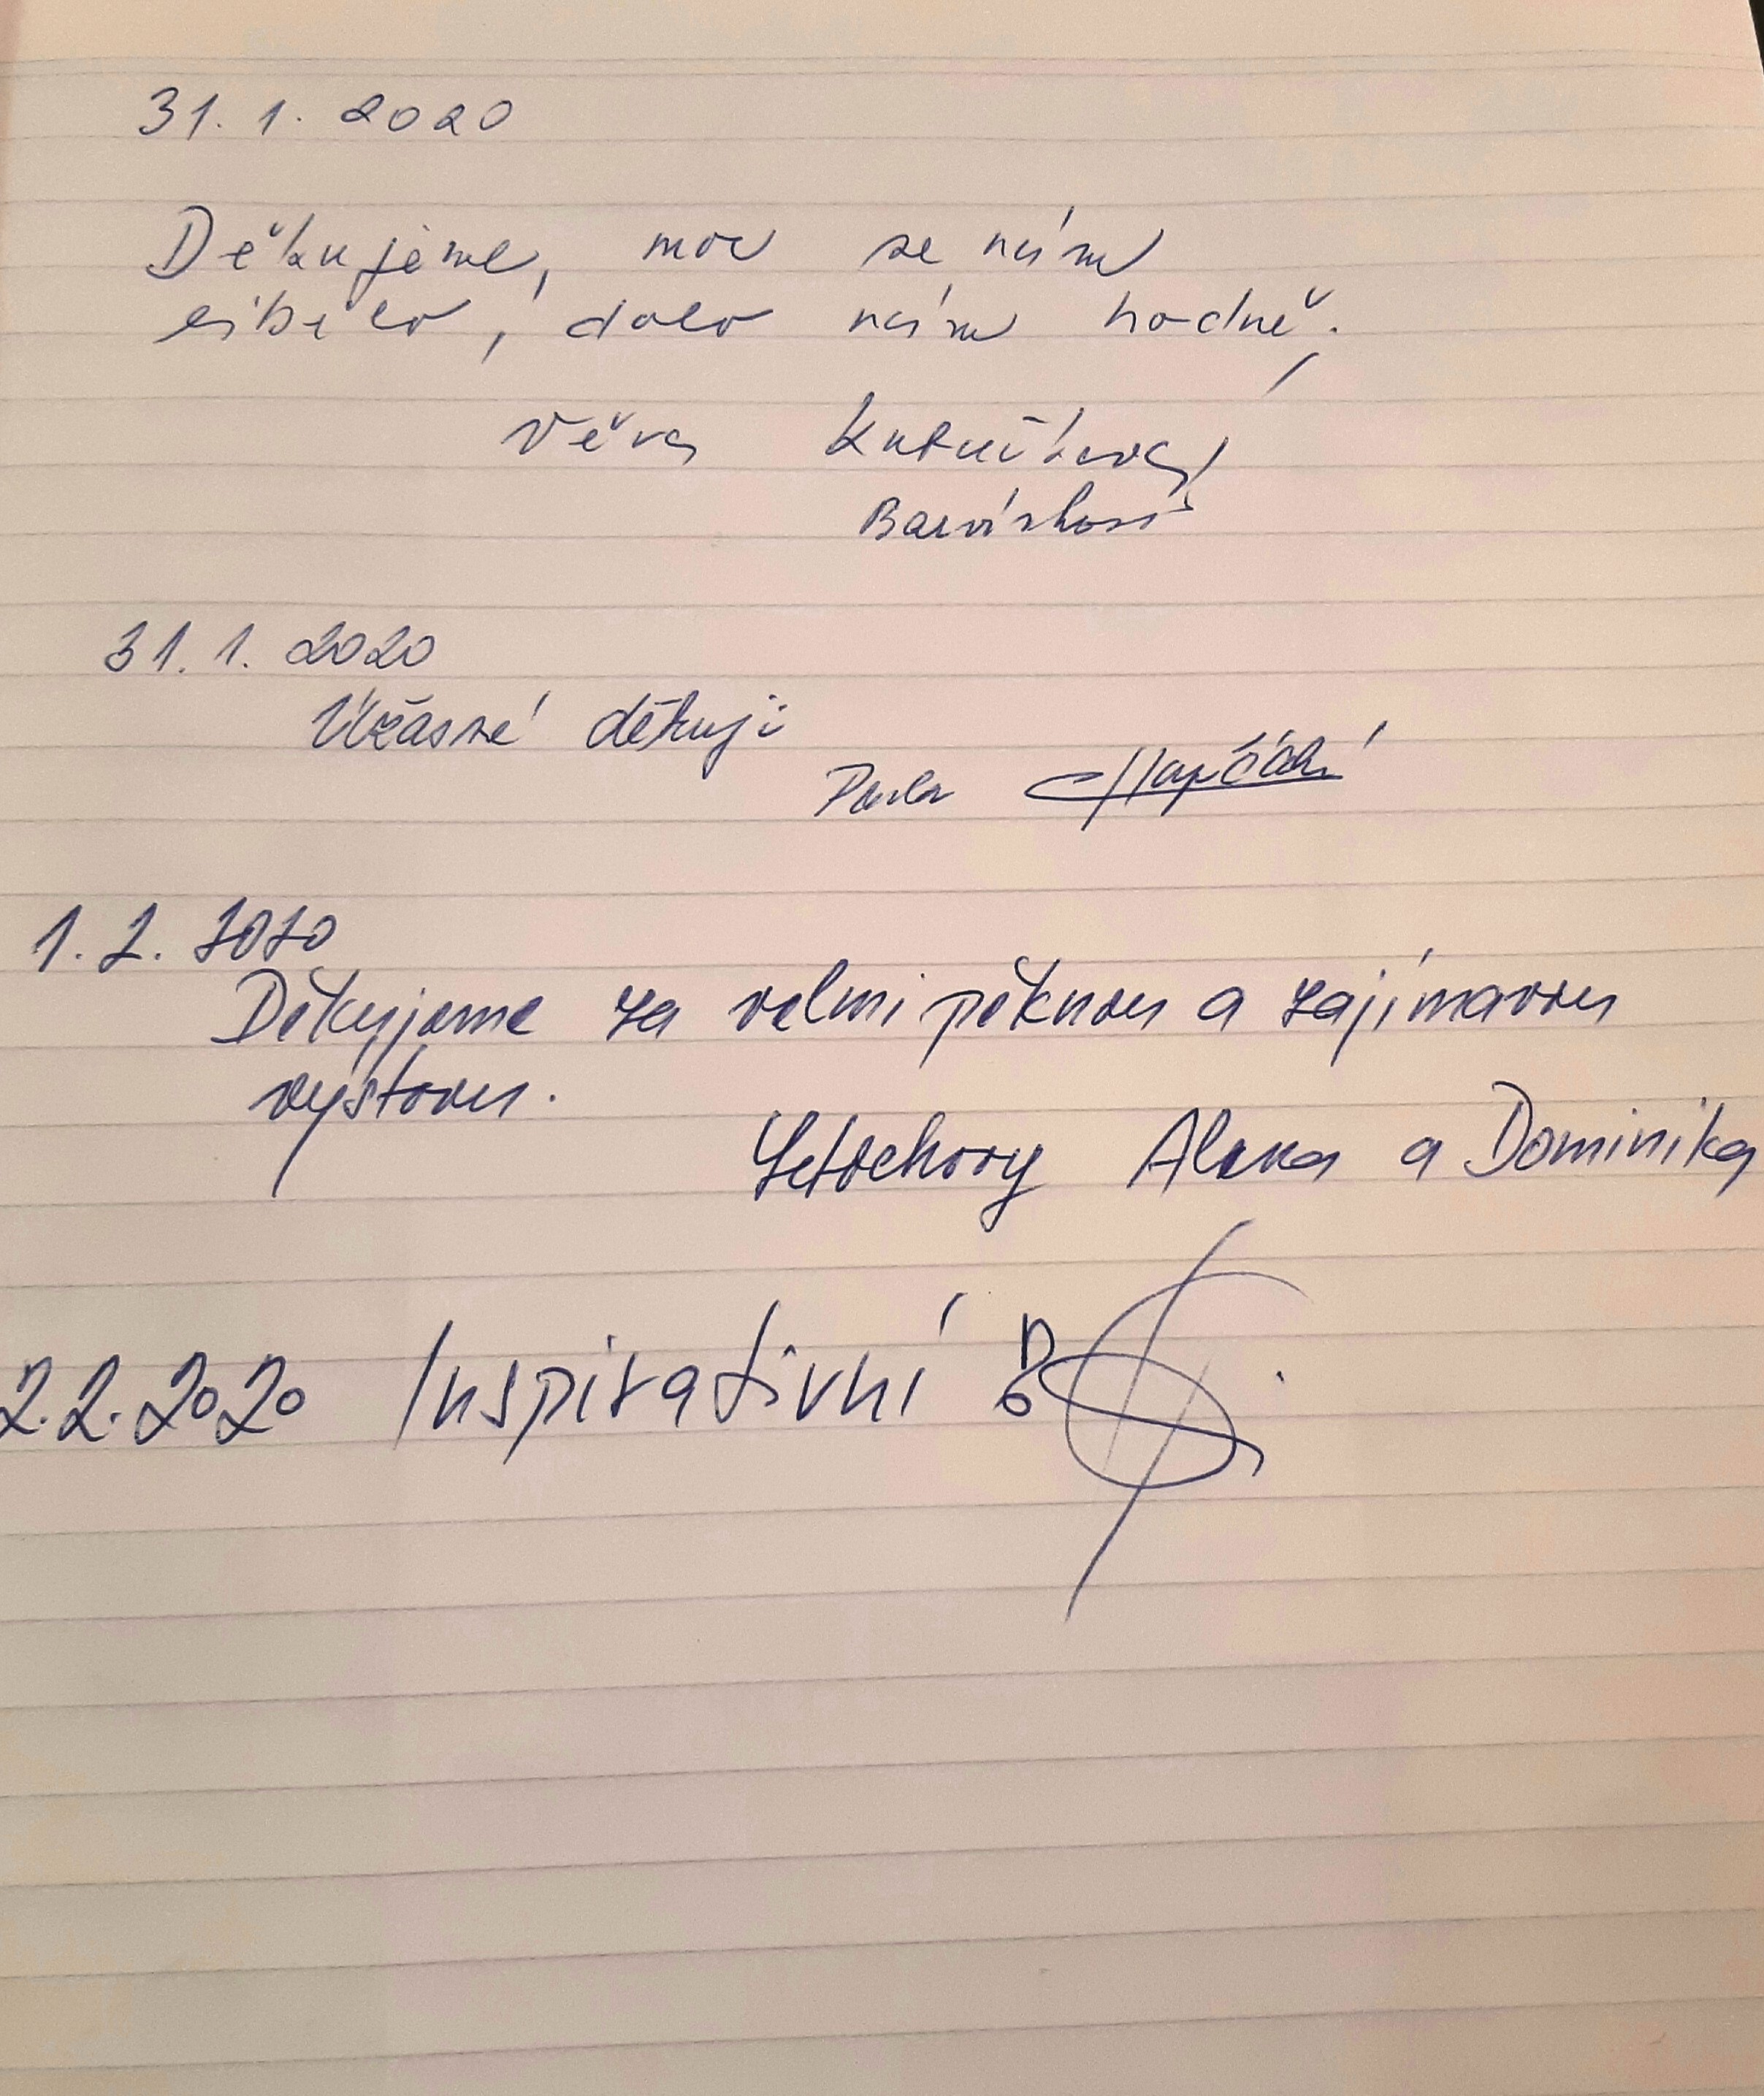 31. 1. 2020
Děkujeme, moc se nám
líbilo, dalo nám hodně.
Věra
31. 1. 2020
Úžasné děkuji
Pavla
1. 2. 2020
Děkujeme za velmi pěknou a zajímavou
výstavu.
Alena a Dominika
2.2.2020 Inspirativní